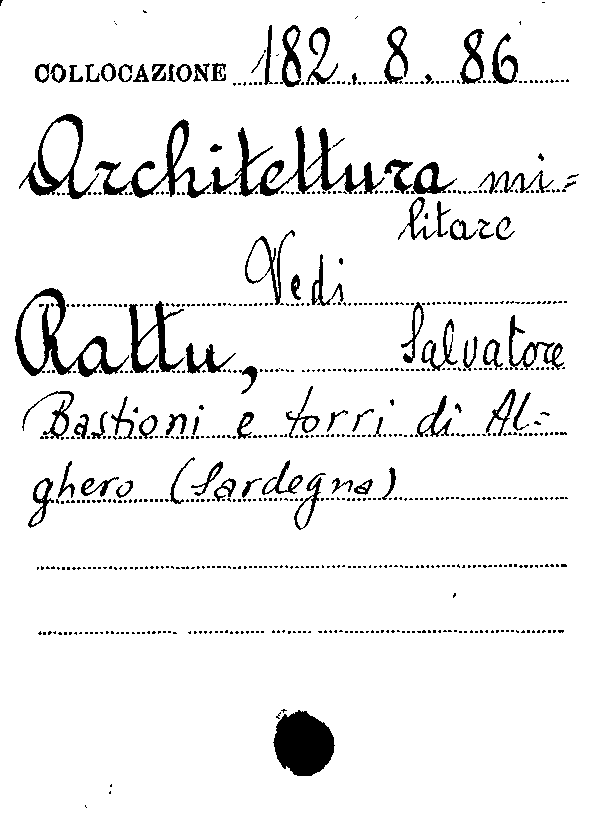 COLLOCAZIONE 182.8.86
Architettura mi=
litare
Vedi
Rattu, Salvatore
Bastioni e torri di Al=
ghero (Sardegna)